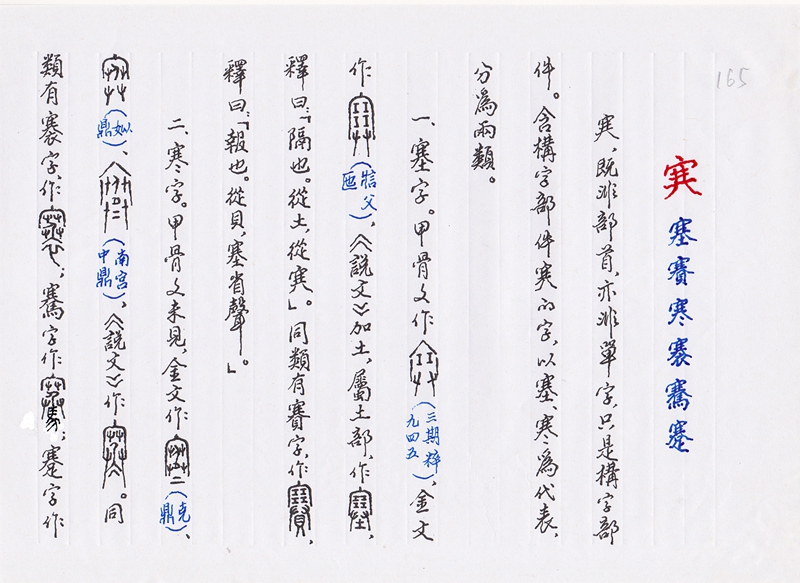 165
𡨄 塞賽寒褰騫蹇
𡨄,既非部首,亦非單字,只是構字部
件。含構字部件𡨄的字,以塞、寒為代表,
分為兩類。
一、塞字。甲骨文作(三期粹九四五),金文
作(父匜),《說文》加土,屬土部,作,
釋曰:「隔也。從土,從𡨄」。同類有賽字,作,
釋曰:「報也。從貝,塞省聲」。
二、寒字。甲骨文未見,金文作(克鼎)、
(姒鼎)、(南宮中鼎),《說文》作。同
類有褰字,作;騫字作;蹇字作